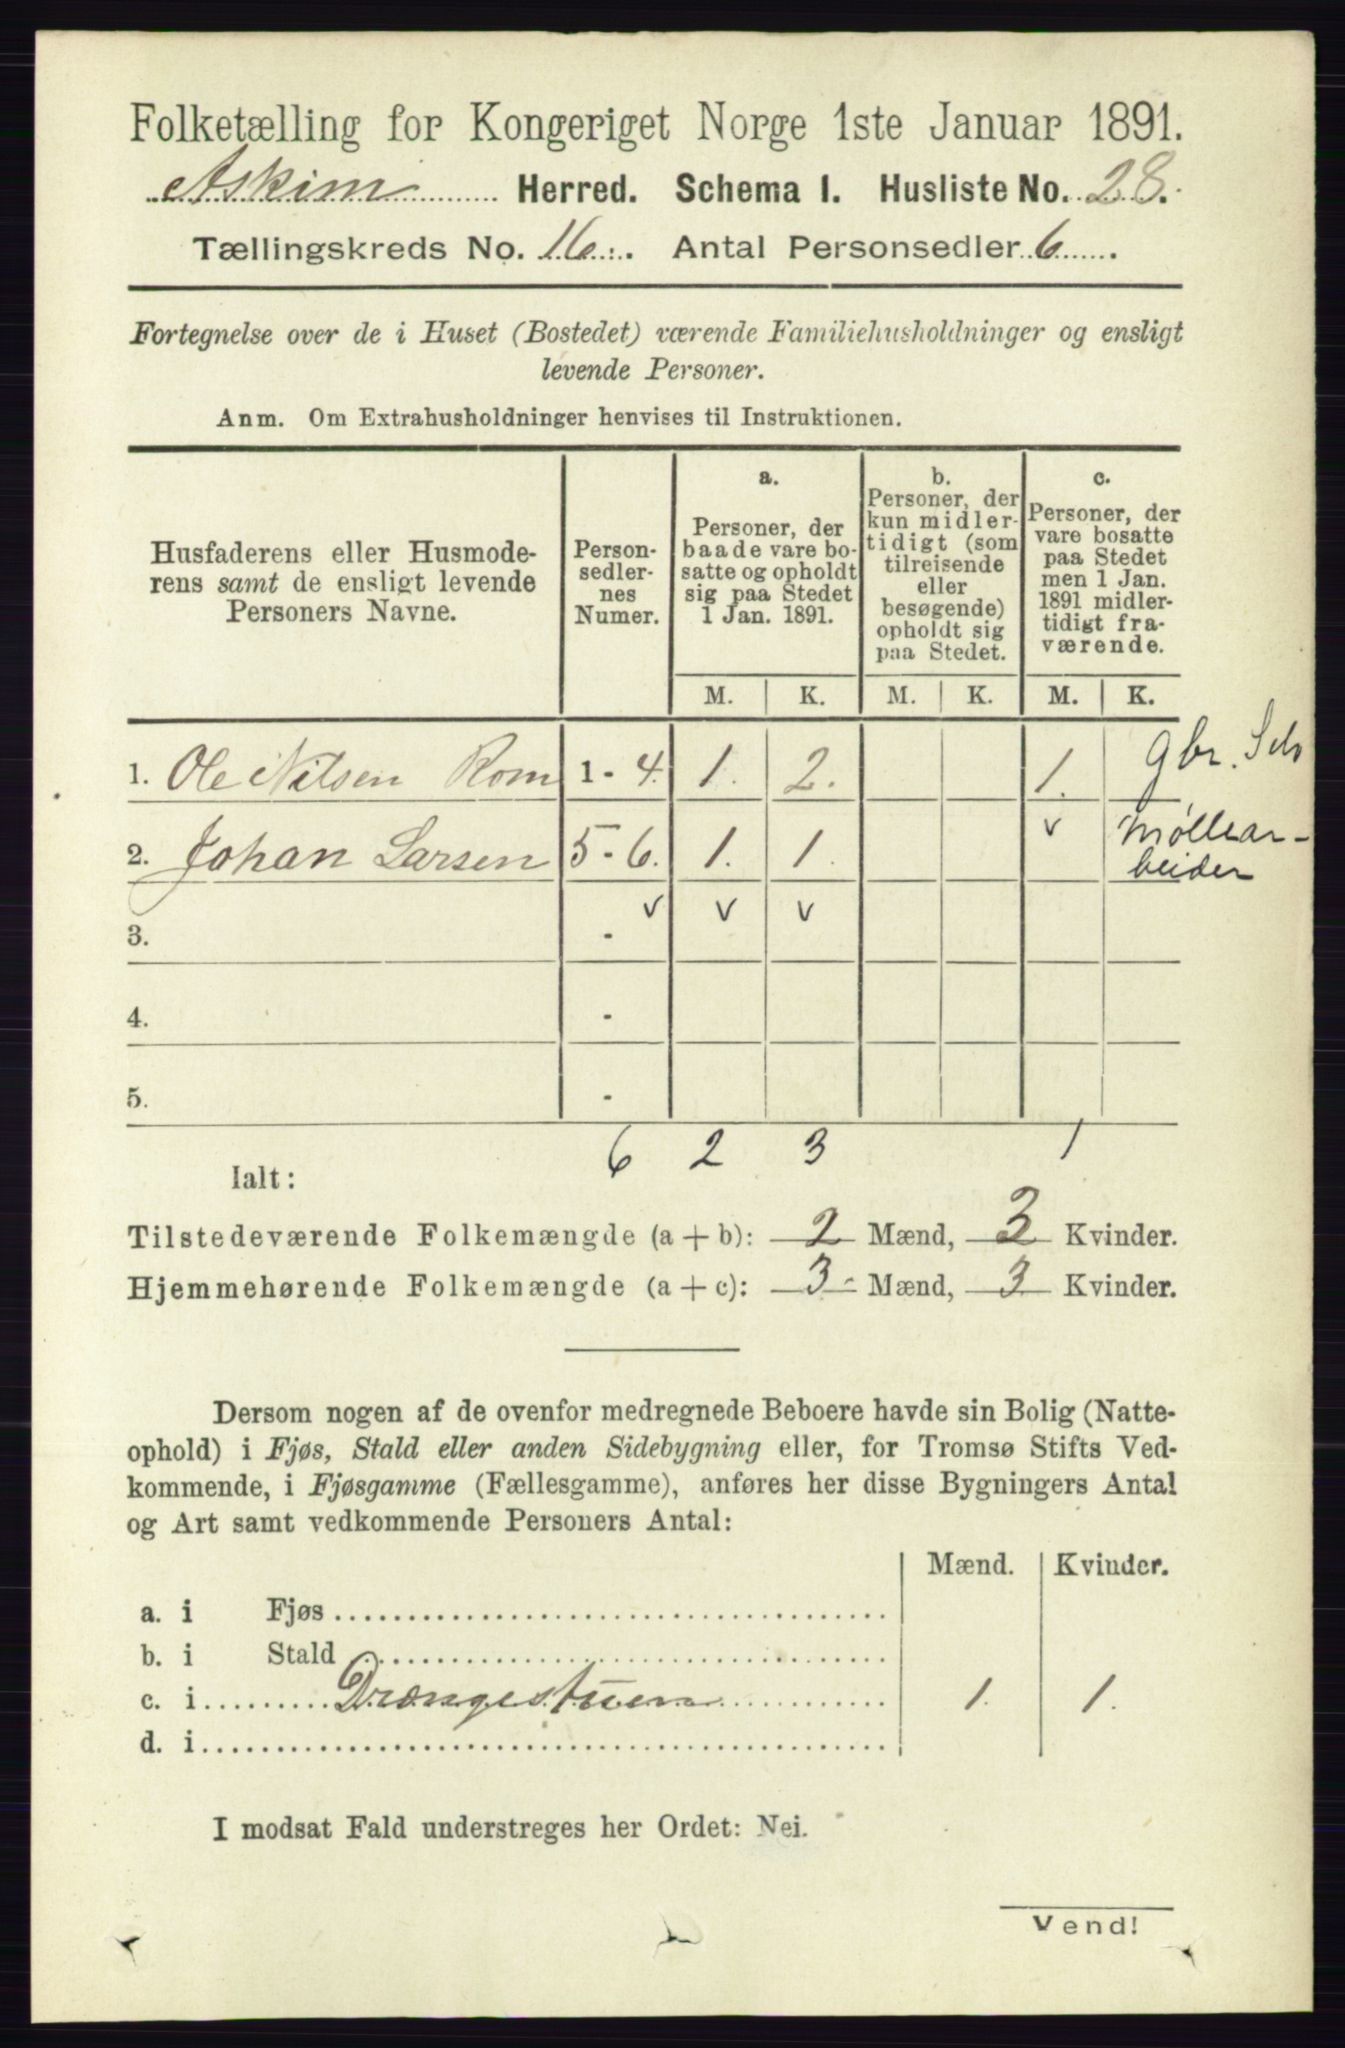 Folketælling for Kongeriget Norge 1ste Januar 1891.
Askim Herred. Schema 1. Husliste No. 28.
Tællingskreds No. 16. Antal Personsedler 6
Fortegnelse over de i Huset (Bostedet) værende Familiehusholdninger og ensligt
levende Personer.
Anm. Om Extrahusholdninger henvises til Instruktionen.
Husfaderens eller Husmode-
rens samt de ensligt levende
Personers Navne.
Person-
sedler-
nes
Numer.
a.
Personer, der
baade vare bo-
satte og opholdt
sig paa Stedet
1 Jan. 1891.
b.
Personer, der
kun midler-
tidigt (som
tilreisende
eller
besøgende)
opholdt sig
paa Stedet.
c.
Personer, der
vare bosatte
paa Stedet
men 1 Jan.
1891 midler-
tidigt fra-
værende.
M. K. M. K. M. K.
1. Ole Nilsen Rom 1 - 4. 1. 2. 1. gbr. Selv
2. Johan Larsen 5 - 6. 1. 1. v Møllear-
beider
v v v
3. -
4. -
5. -
6 2 3 1
Ialt:
Tilstedeværende Folkemængde (a + b): 2 Mænd, 3 Kvinder.
Hjemmehørende Folkemængde (a + c): 3 - Mænd, 3 Kvinder.
Dersom nogen af de ovenfor medregnede Beboere havde sin Bolig (Natte-
ophold) i Fjøs, Stald eller anden Sidebygning eller, for Tromsø Stifts Ved-
kommende, i Fjøsgamme (Fællesgamme), anføres her disse Bygningers Antal
og Art samt vedkommende Personers Antal:
Mænd. Kvinder.
a. i Fjøs
b. i Stald
c. i Drengestuen 1. 1.
d. i
I modsat Fald understreges her Ordet: Nei.
Vend!